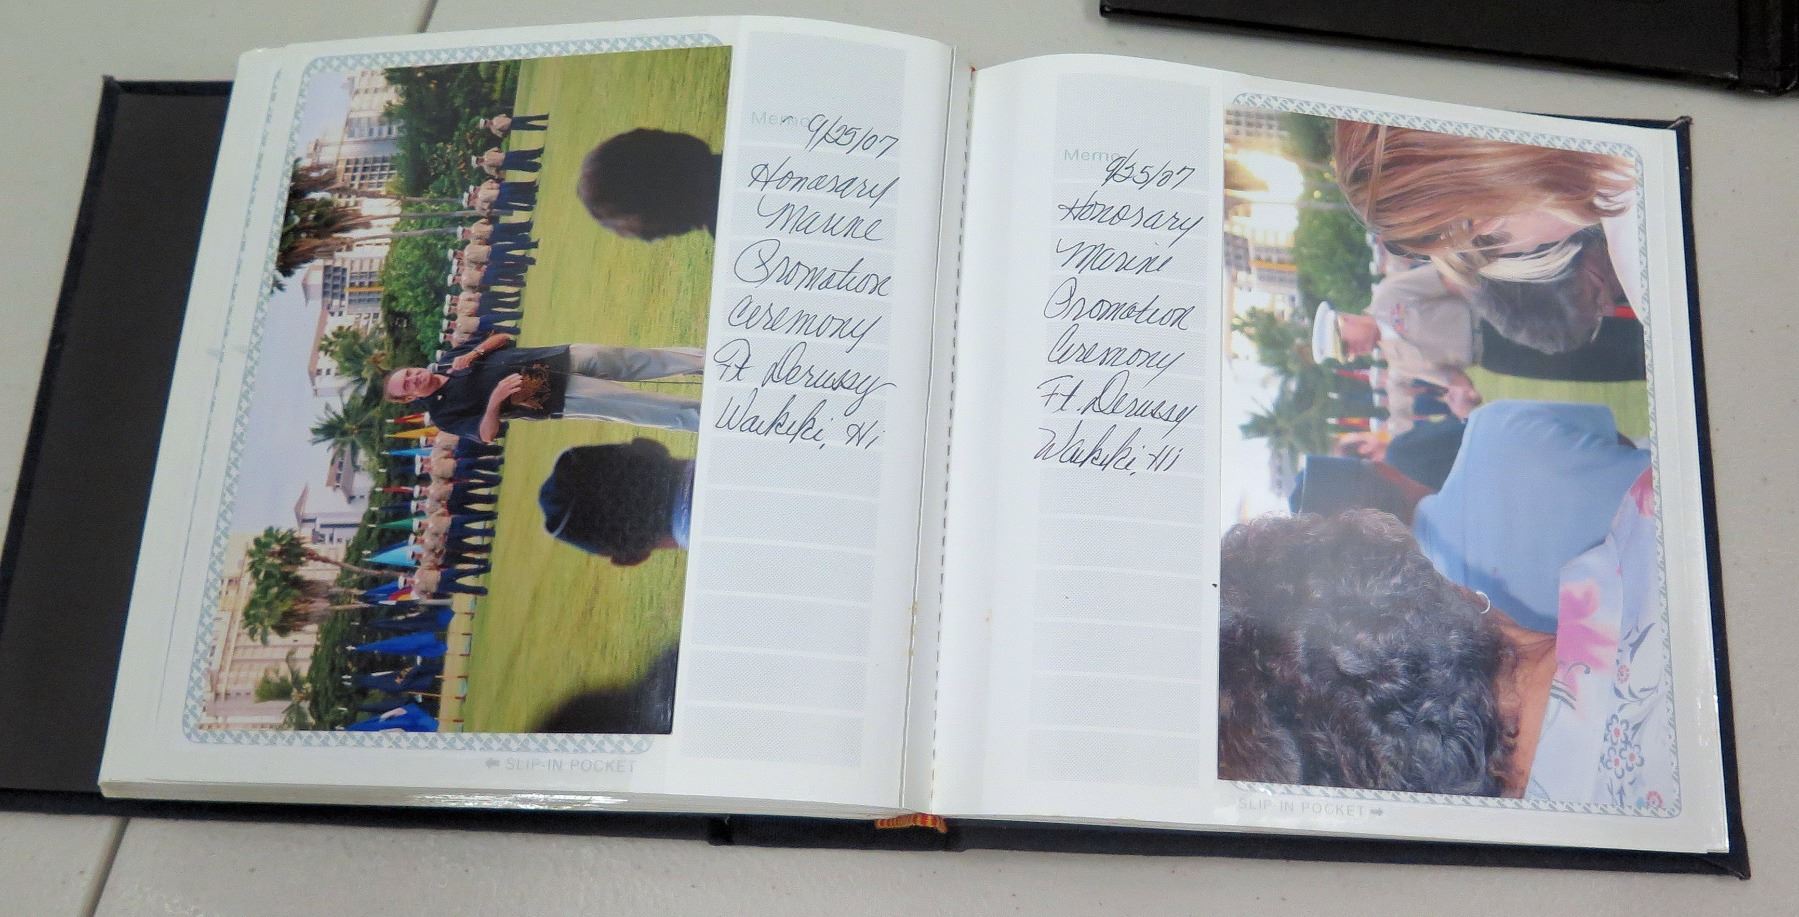 Memo 9/25/07
Honorary
Marine
Promotion
Ceremony
Ft Derussy
Waikiki, Hi
← SLIP-IN POCKET
Memo 9/25/07
Honorary
Marine
Promotion
Ceremony
Ft. Derussy
Waikiki, Hi
SLIP-IN POCKET →